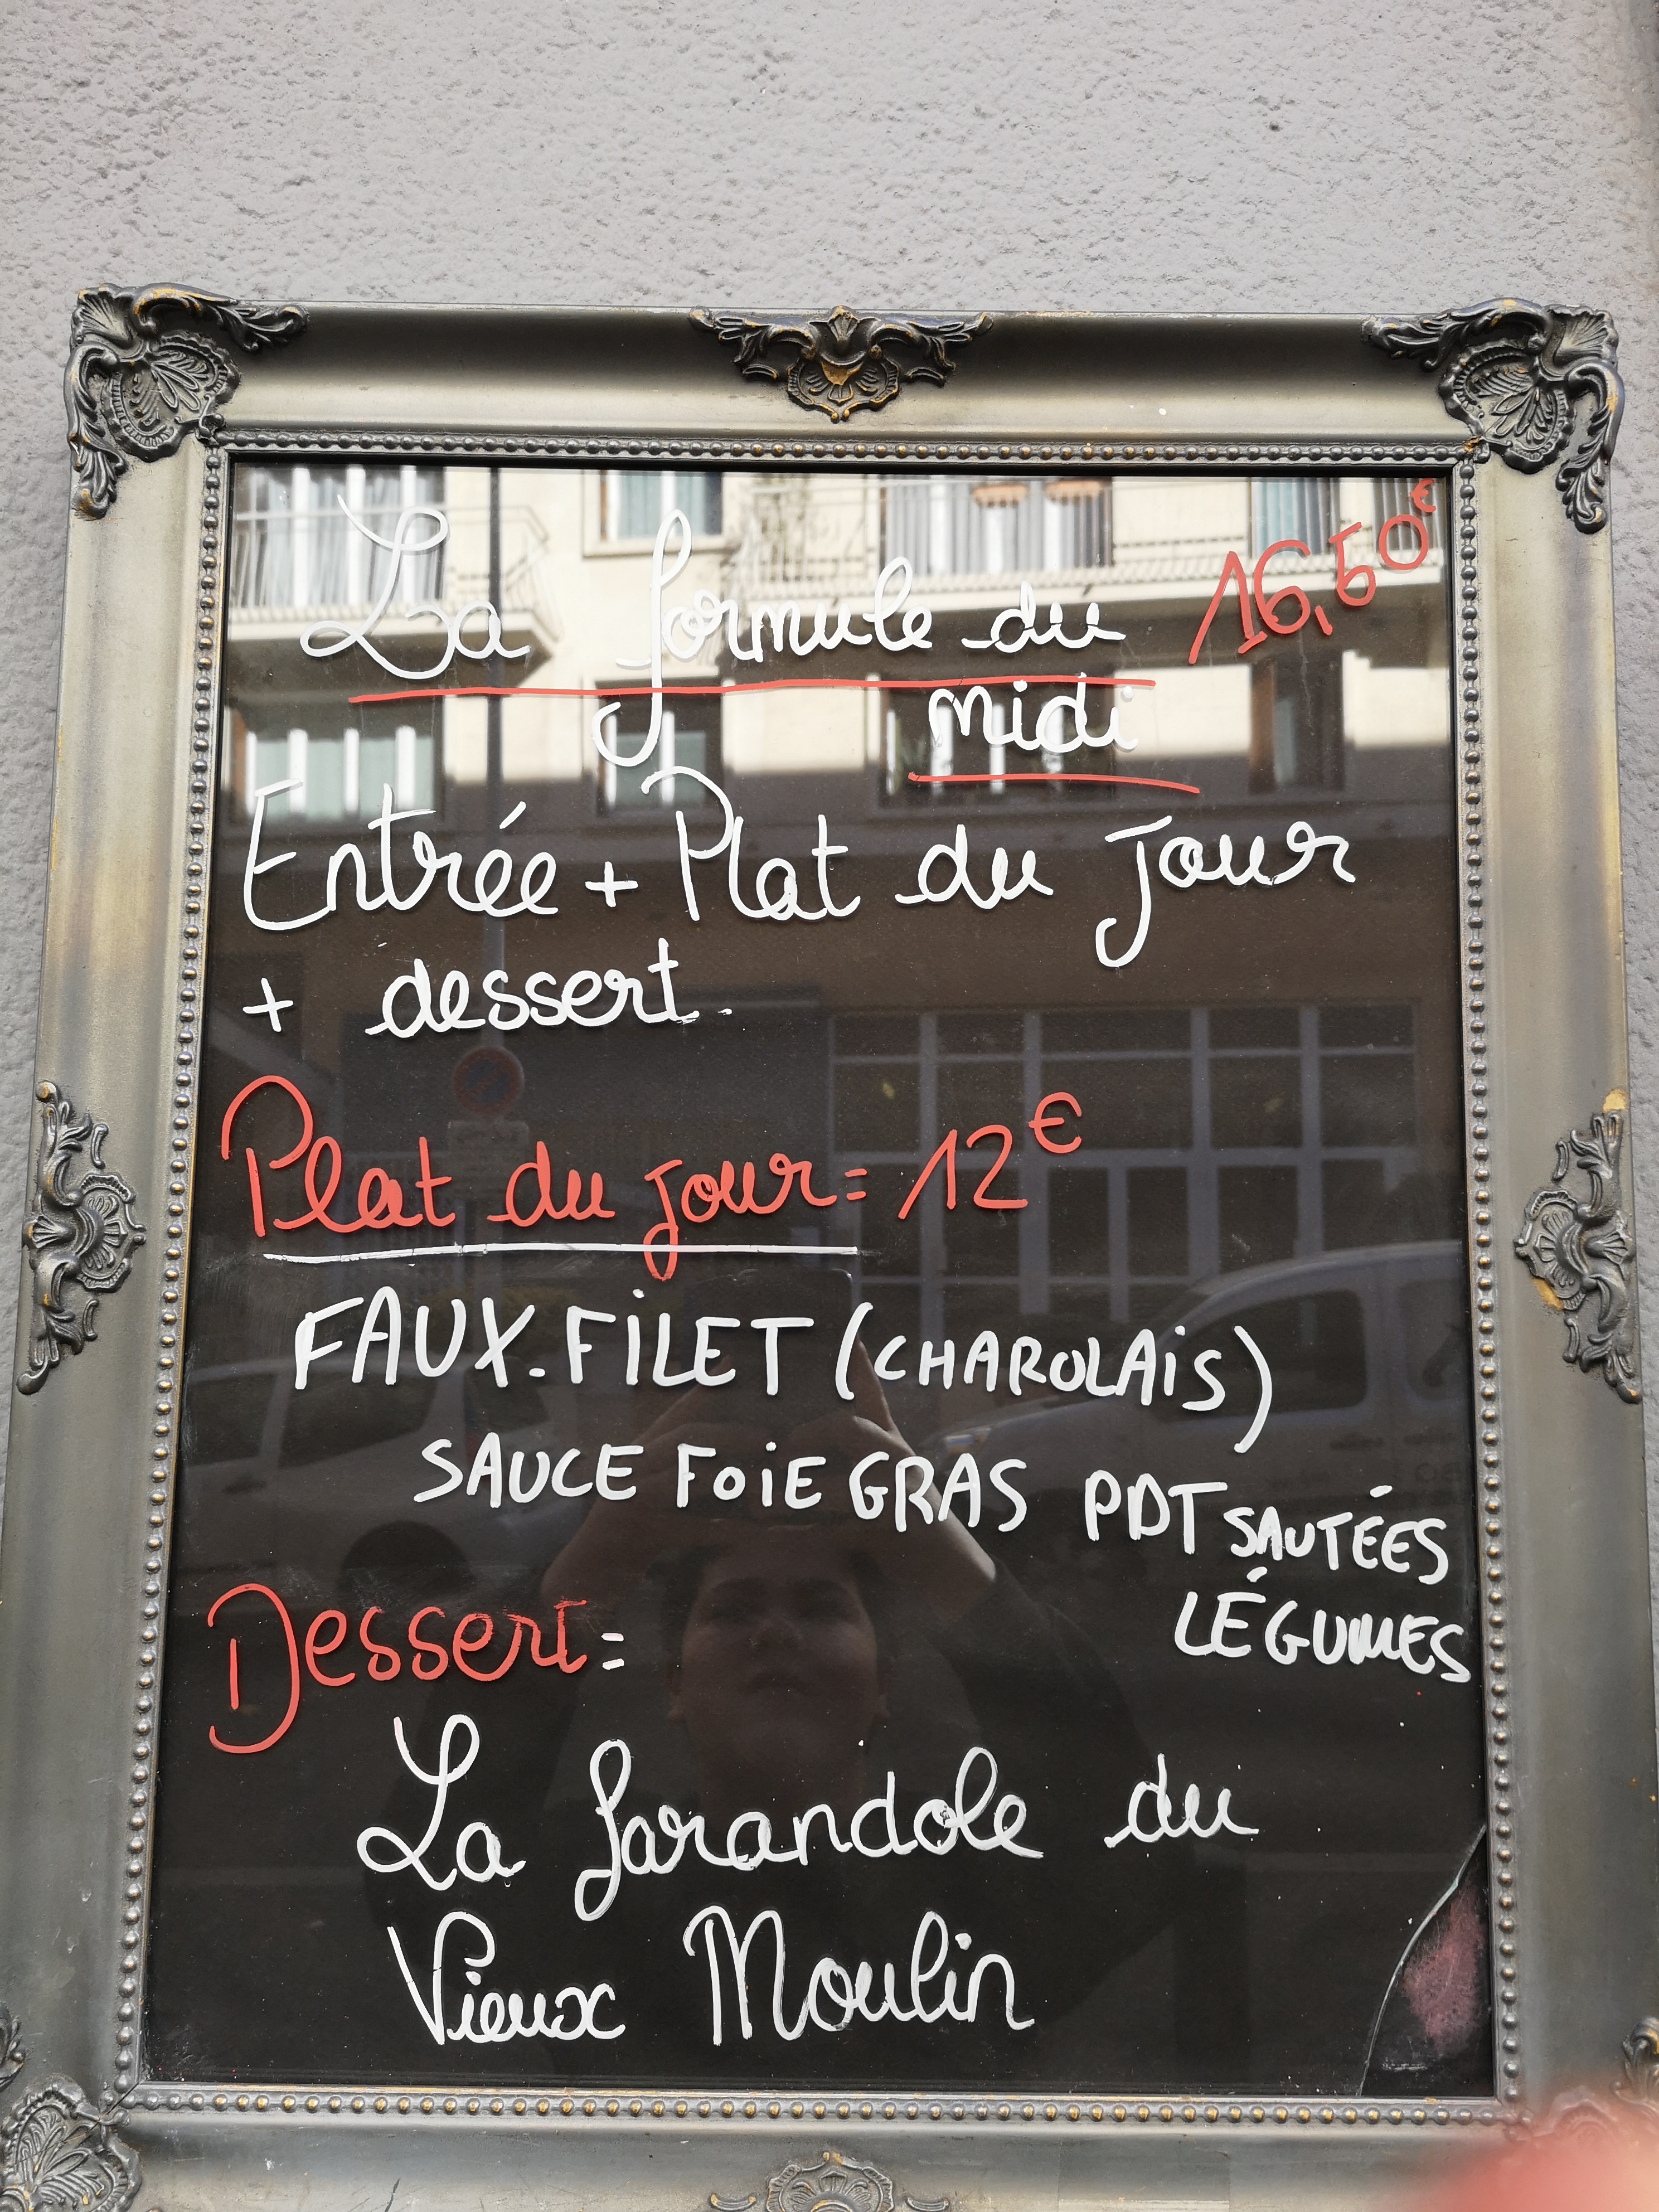 La formule du 16,50€
midi
Entrée + Plat du jour
+ dessert.
Plat du jour = 12€
FAUX-FILET (CHAROLAIS)
SAUCE FOIE GRAS PDT SAUTÉES
LÉGUMES
Dessert =
La farandole du
Vieux Moulin